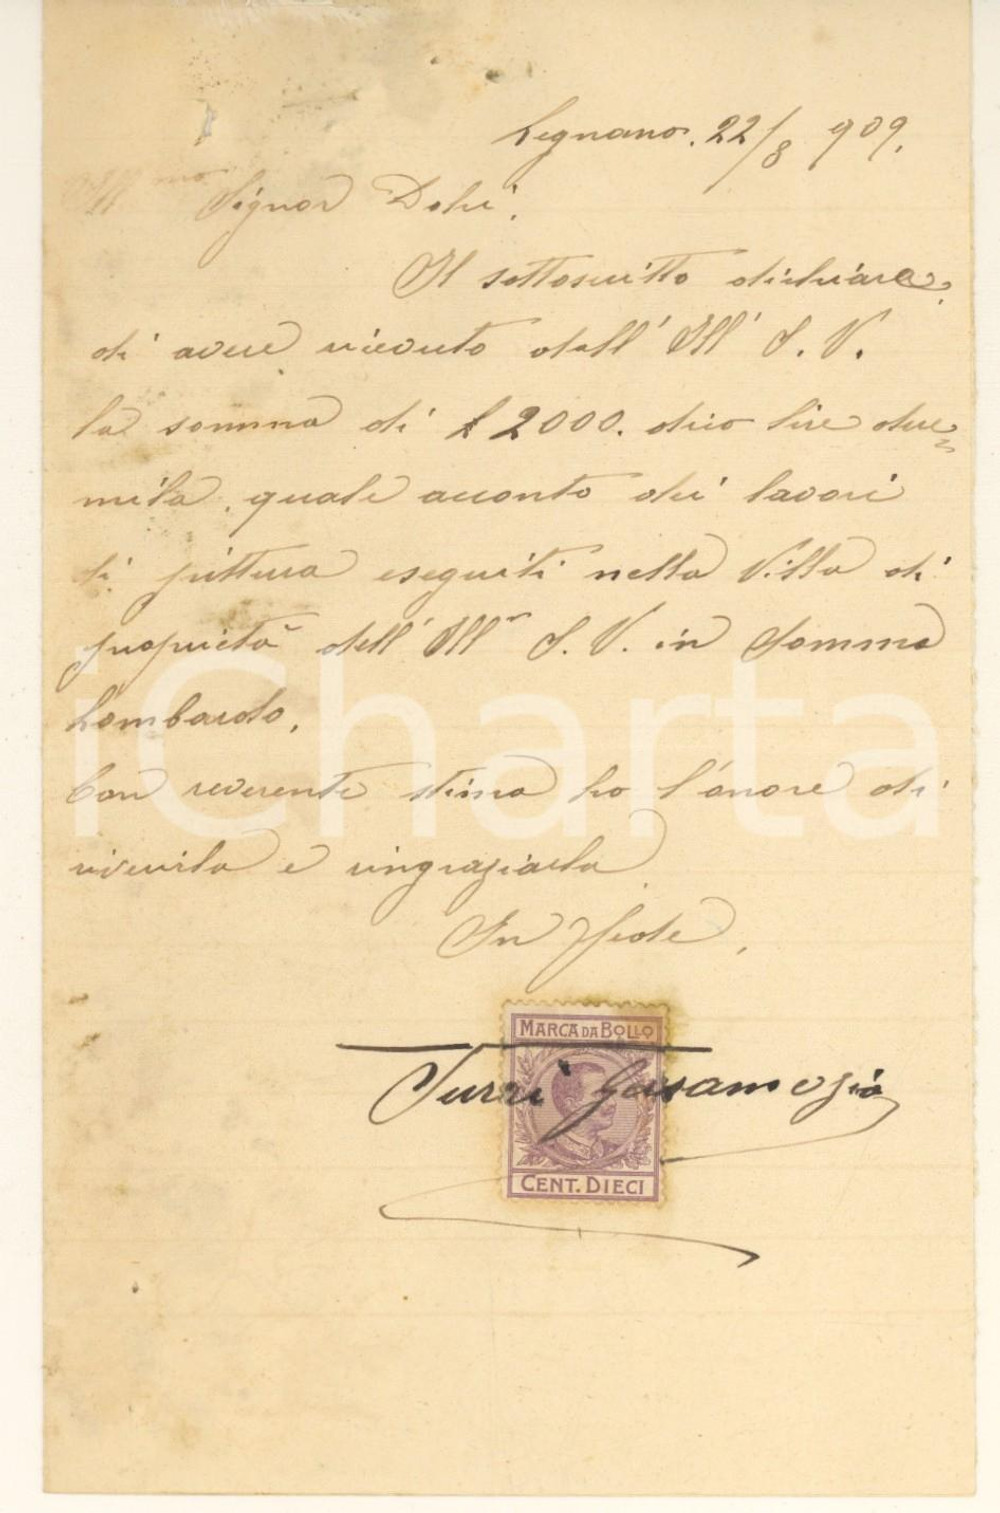 Legnano. 22/8 909.
Ill mo Signor Dolci.
Il sottoscritto dichiara
di avere ricevuto dall' Ill' S. V.
la somma di £ 2000. dico lire due
mila, quale acconto dei lavori
di pittura eseguiti nella Villa di
proprietà dell' Ill S. V. in Somma
Lombardo.
Con reverente stima ho l'onore di
riverirla e ringraziarla
In fede,
MARCA DA BOLLO
Turri
CENT. DIECI
iCharta